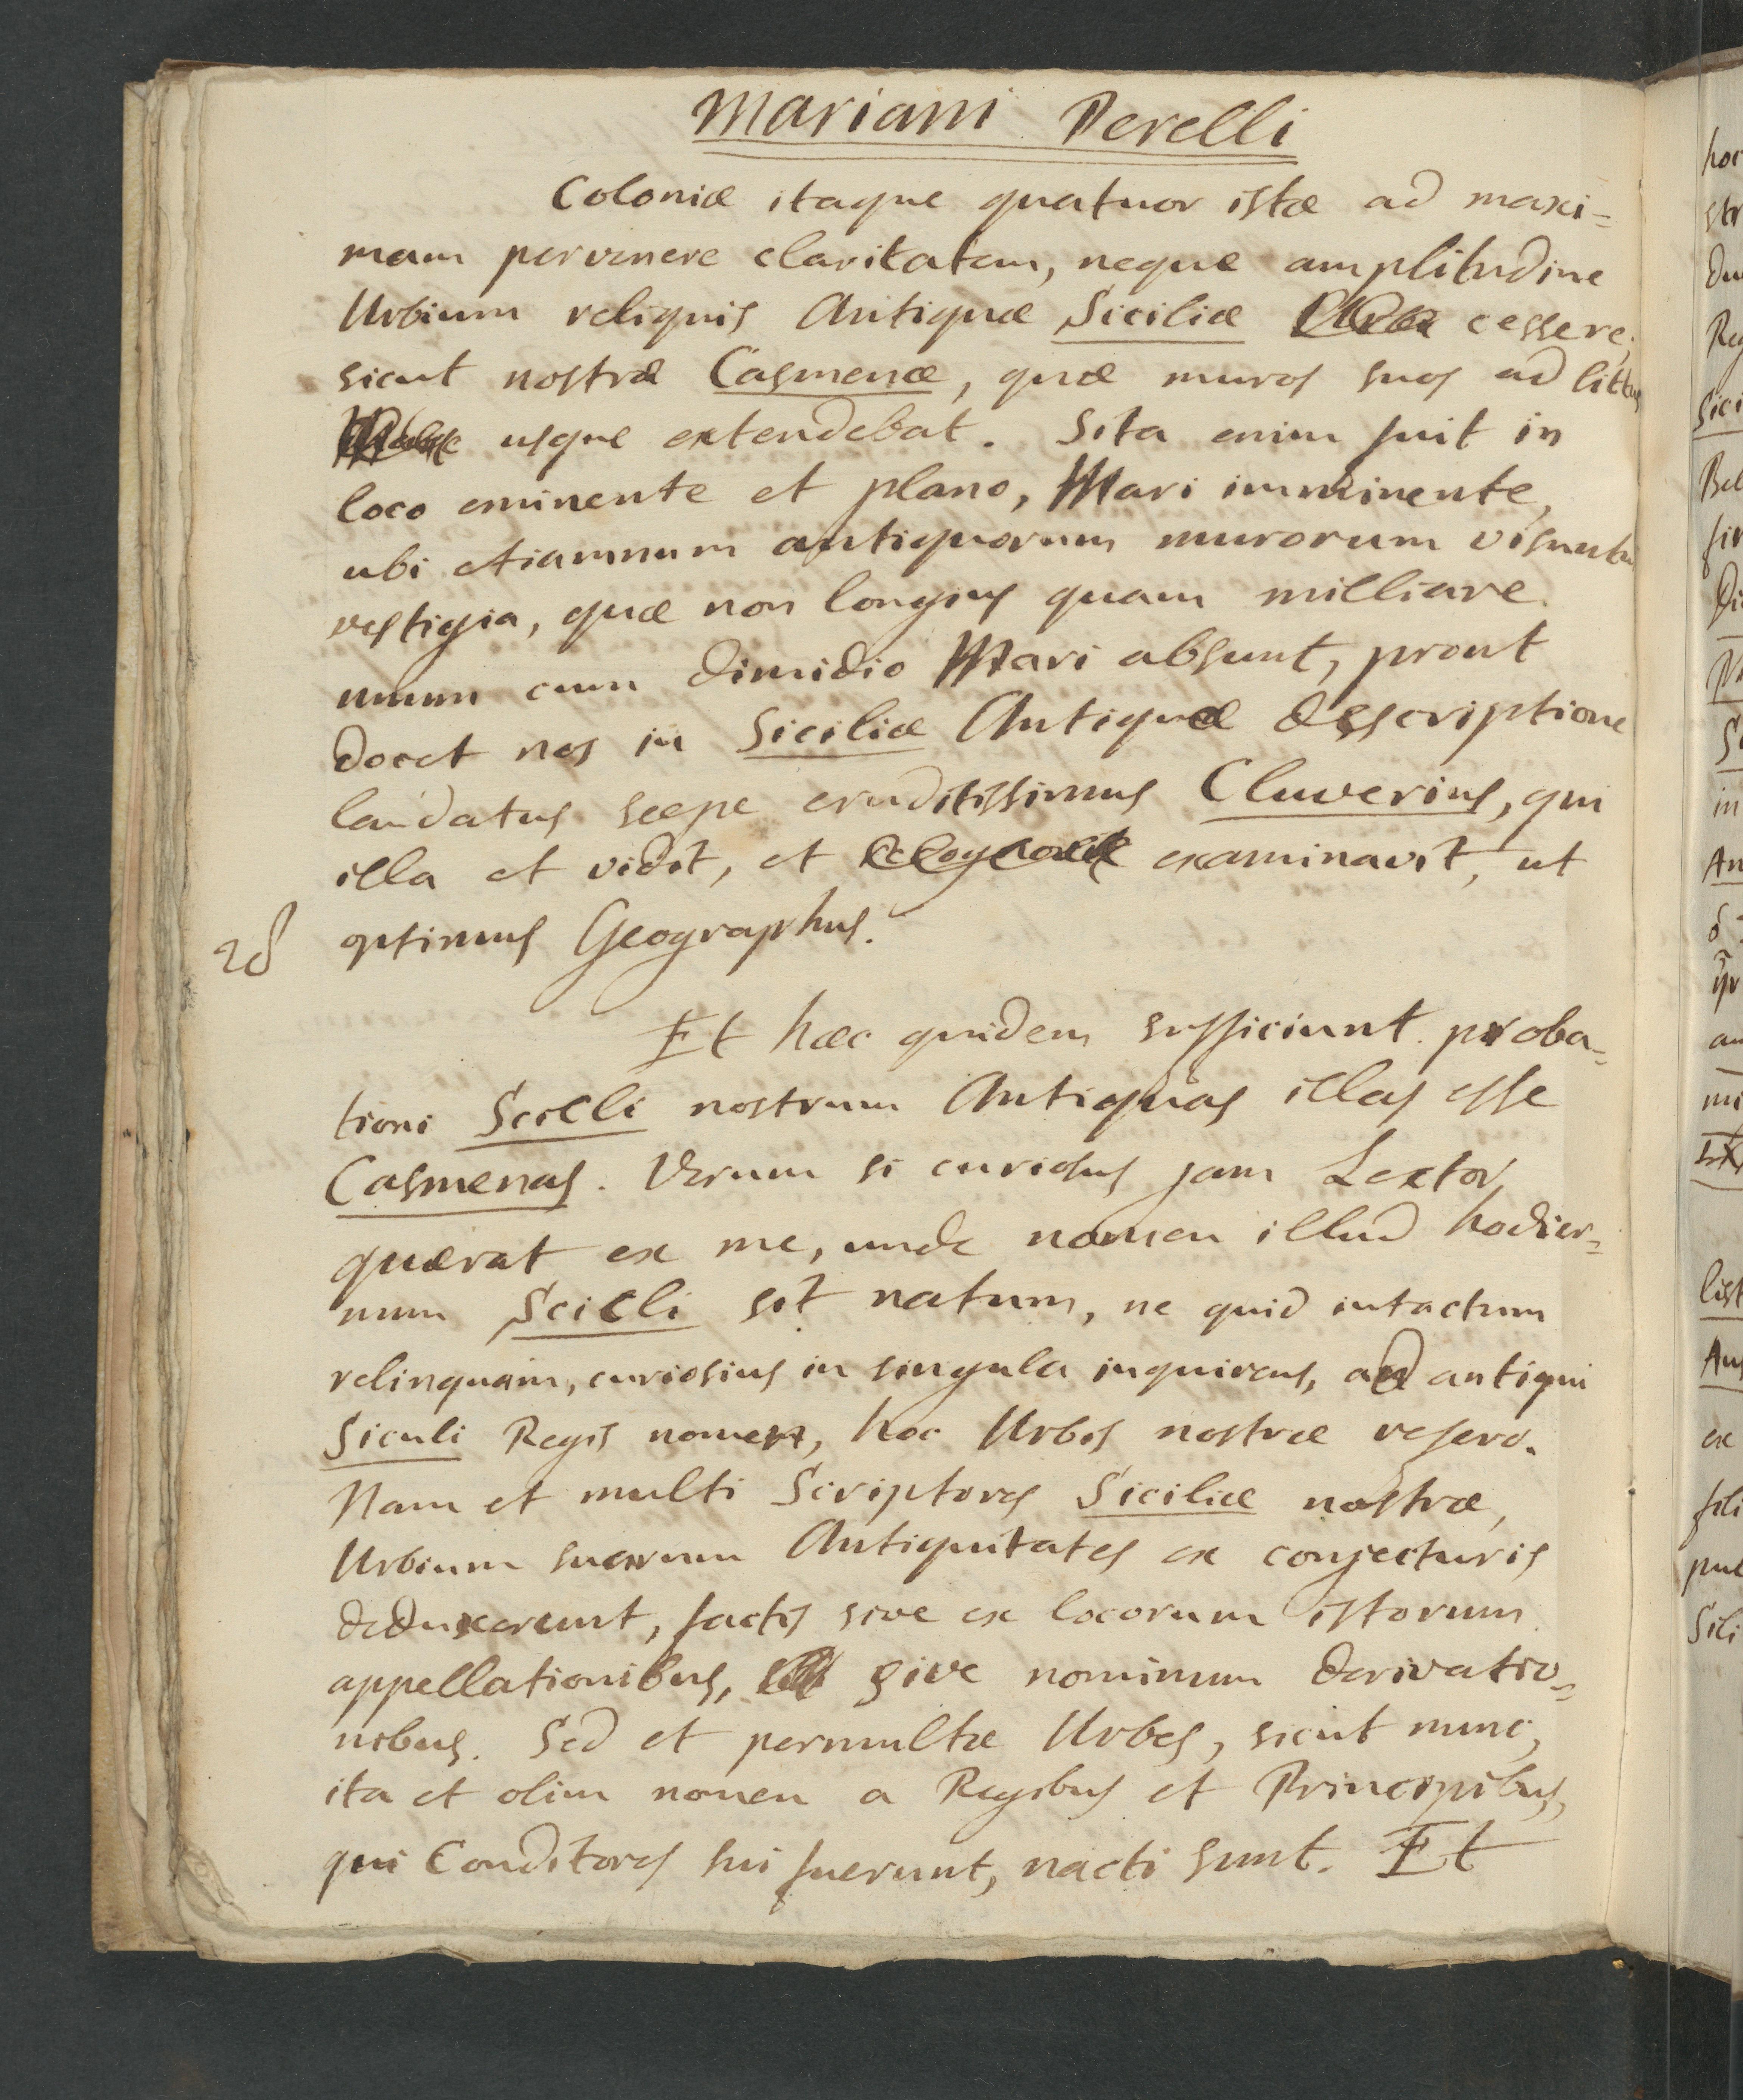 Mariani Perelli
Coloniæ itaque quatuor istæ ad maxi=
mam pervenere claritatem, neque amplitudine
Urbium reliquis Antiquæ Siciliæ cessere;
sicut nostræ Casmenæ, quæ muros suos ad littus
usque extendebat. Sita enim fuit in
loco eminente et plano, Mari imminente,
ubi etiamnum antiquorum murorum visuntur
vestigia, quæ non longius quam milliare
unum cum dimidio Mari absunt, prout
docet nos in Siciliæ Antiquæ descriptione
laudatus sæpe eruditissimus Cluverius, qui
illa et vidit, et examinavit, ut
optimus Geographus.
28
Et hæc quidem sufficiunt proba=
tioni Scicli nostrum Antiquas illas esse
Casmenas. Verum si curiosus jam Lector
quærat ex me, unde nomen illud hodier=
num Scicli sit natum, ne quid intactum
relinquam, curiosius in singula inquirens, ad antiqui
Siculi Regis nomen, hoc Urbis nostræ refero.
Nam et multi Scriptores Siciliæ nostræ,
Urbium suarum Antiquitates ex conjecturis
deduxerunt, factis sive ex locorum istorum
appellationibus, sive nominum derivatio=
nibus. Sed et permultæ Urbes, sicut nunc,
ita et olim nomen a Regibus et Principibus,
qui Conditores sui fuerunt, nacti sunt. Et